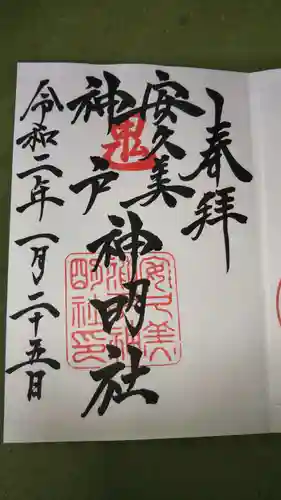 奉拝
安久美
神戸
神明社
鬼
安久美神戸神明社印
令和二年一月二十五日